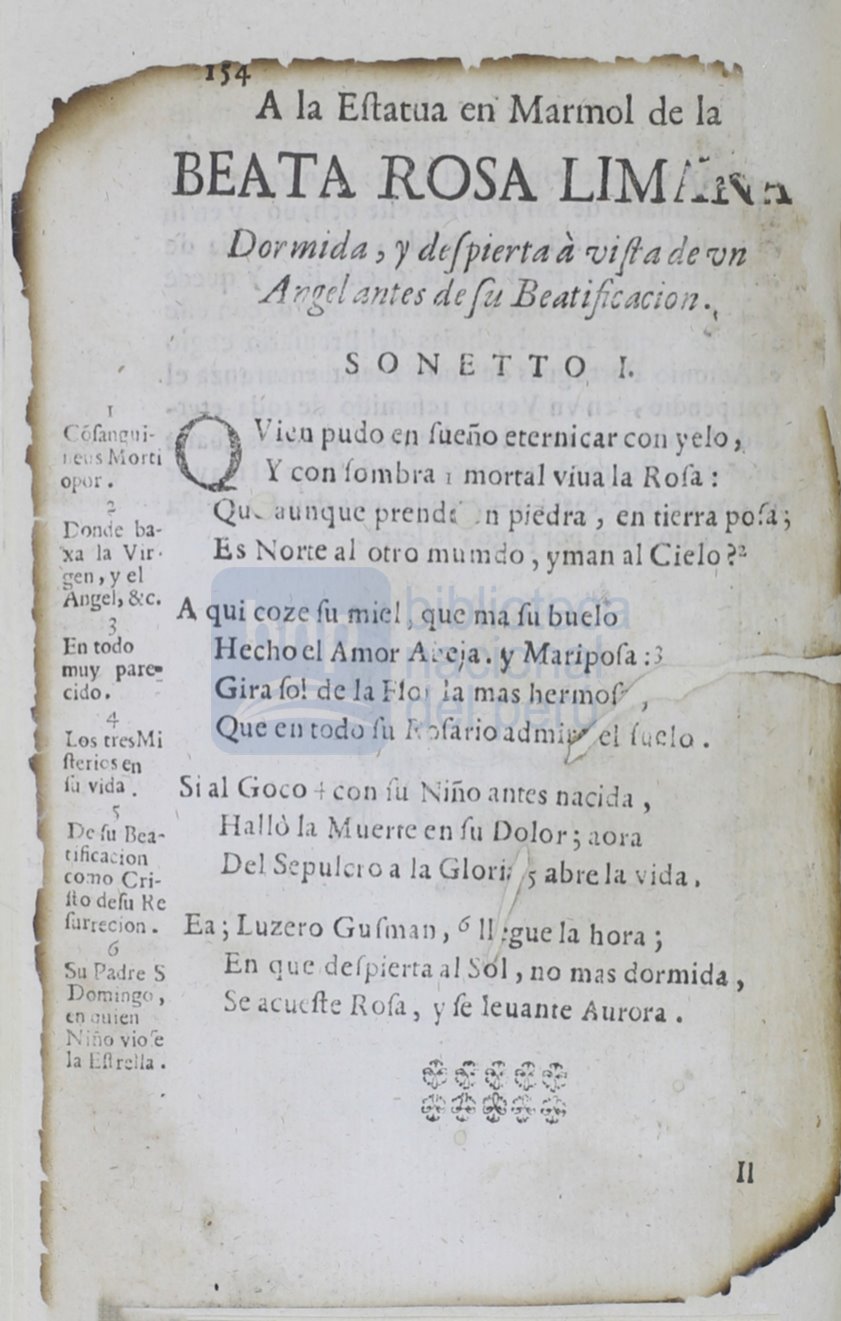 154
A la Eſtatua en Marmol de la
BEATA ROSA LIMANA
Dormida, y deſpierta à viſta de vn
Angel antes de ſu Beatificacion.
SONETTO I.
QVien pudo en ſueño eternicar con yelo,
Y con ſombra 1 mortal viua la Roſa:
aunque piedra, en tierra poſa;
Es Norte al otro mumdo, yman al Cielo?2
A qui coze ſu miel, que ma ſu buelo
Hecho el Amor Abeja. y Maripoſa:3
Gira ſol de la Flor la mas hermoſa,
Que en todo ſu Roſario admira el ſuelo.
Si al Goco 4 con ſu Niño antes nacida,
Hallò la Muerte en ſu Dolor; aora
Del Sepulcro a la Gloria 5 abre la vida.
Ea; Luzero Guſman, 6 llegue la hora;
En que deſpierta al Sol, no mas dormida,
Se acueſte Roſa, y ſe leuante Aurora.
1
Cõſangui-
neus Morti
opor.
2
Donde ba-
xa la Vir-
gen, y el
Angel, &c.
3
En todo
muy pare-
cido.
4
Los tres Mi
ſterios en
ſu vida.
5
De ſu Bea-
tificacion
como Cri-
ſto de ſu Re
ſurrecion.
6
Su Padre S
Domingo,
en quien
Niño vioſe
la Eſtrella.
Il
bnp
biblioteca
nacional
del perú